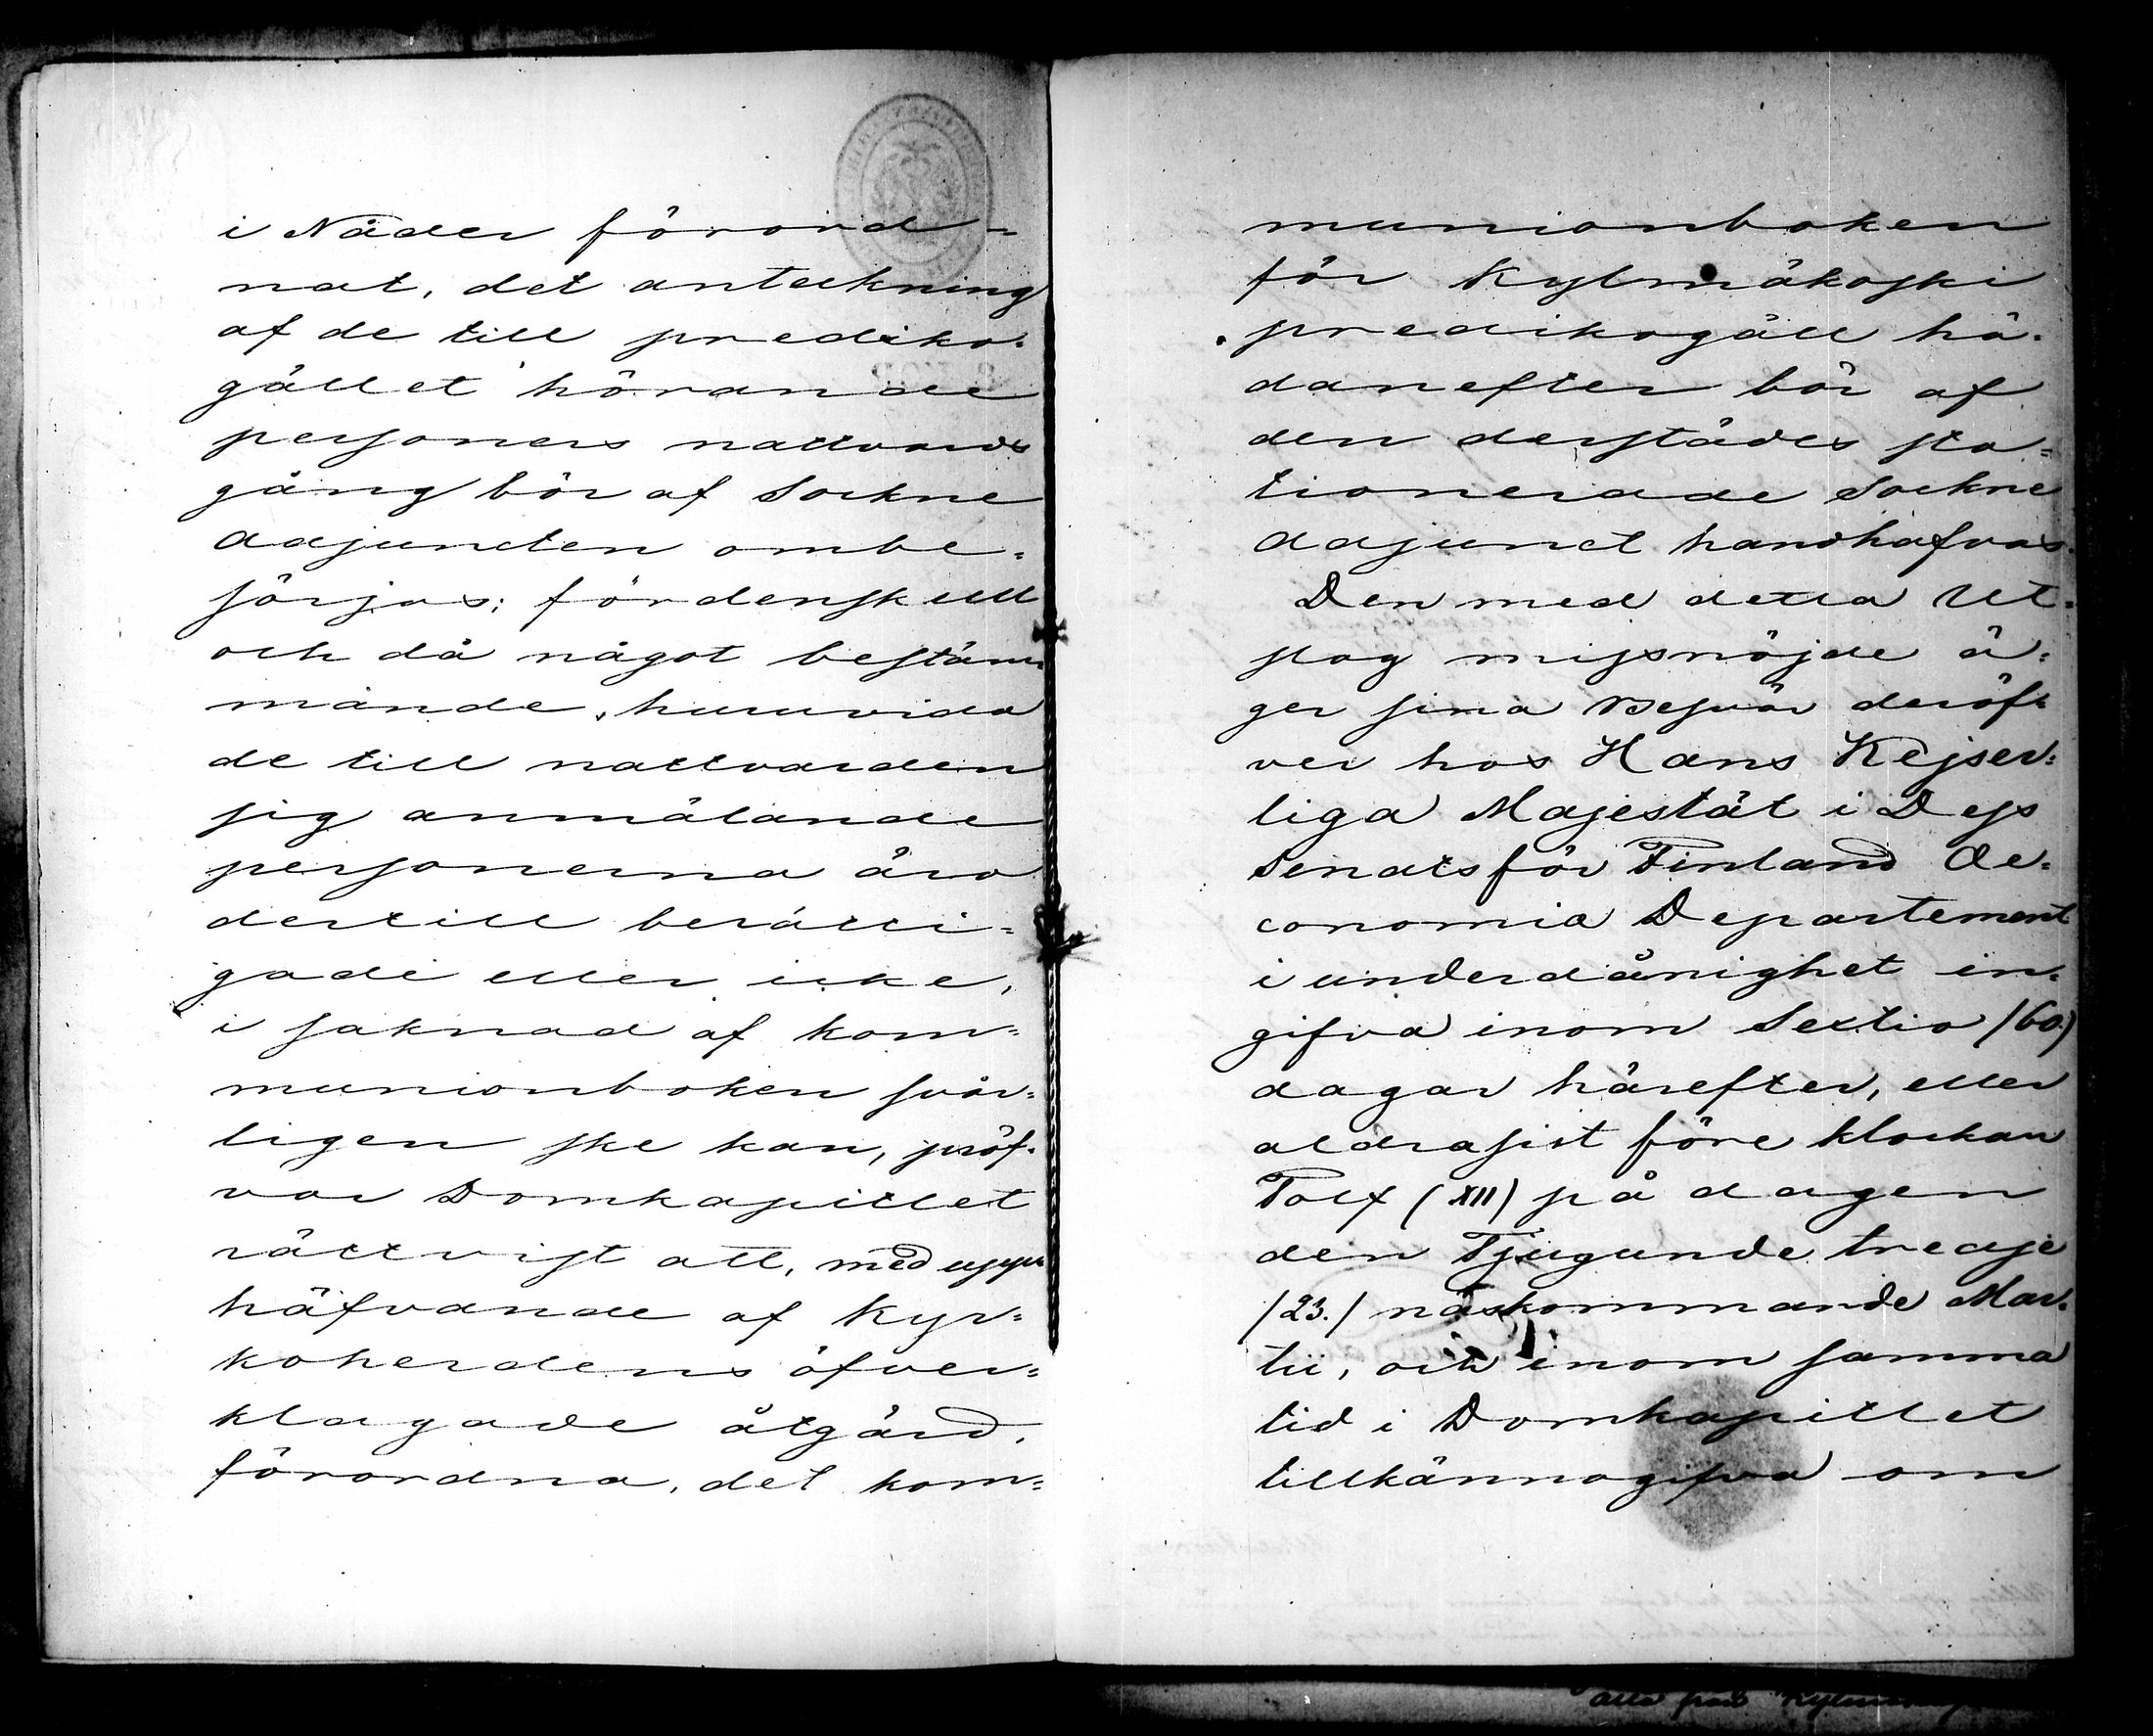 i Nåder förord-
nat, det anteckning
af de till prediko-
gället hörande
personers nattvards
gång bör af Sockne
adjuncten ombe-
sörjas; fördenskull
och då något bestäm-
mande, huruvida
de till nattvarden
sig anmälande
personerna äro
dertill berätti-
gade eller icke,
i saknad af kom-
munionboken svår-
ligen ske kan, pröf-
var Domkapitlet
rättvist att, med upp-
häfvande af Kyr-
koherdens öfver-
klagade åtgärd,
förordna, det kom-
munionboken
för Kylmäkoski
predikogäll hä-
danefter bör af
den derstädes sta-
tionerade Sockne
adjunct handhafvas.
Den med detta Ut-
slag missnöjde ä-
ger sina Besvär deröf-
ver hos Hans Kejser-
liga Majestät i Dess
Senats för Finland Oe-
conomie Departement
i underdånighet in-
gifva inom Sextio (60.)
dagar härefter, eller
aldrasist före klockan
Tolf (XII) på dagen
den Tjugunde tredje
/23./ näskommande Mar-
tii, och inom samma
tid i Domkapitlet
tillkännagifva om
alla från